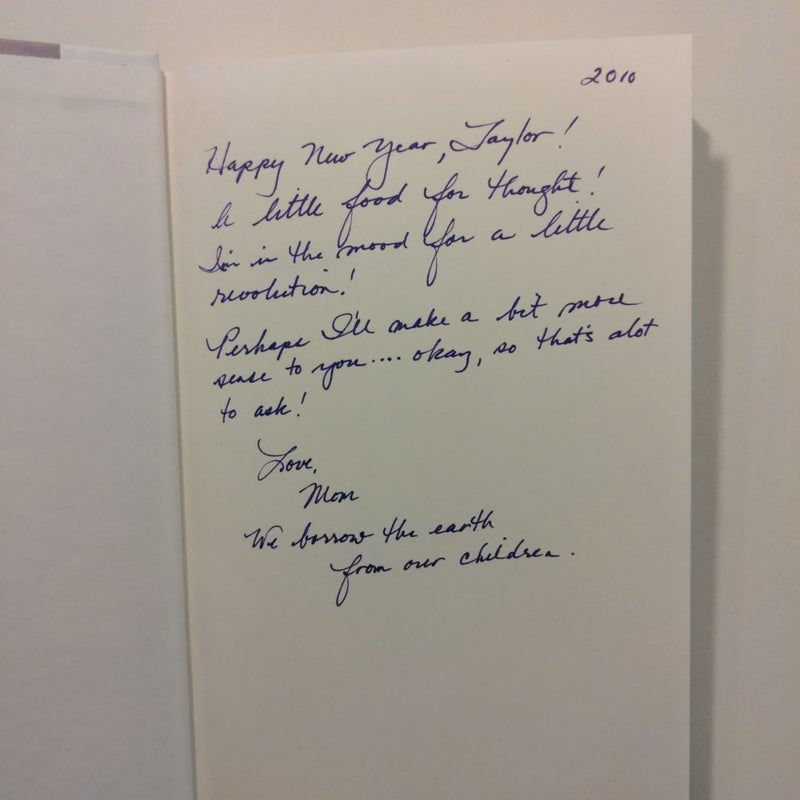 2010
Happy New Year, Taylor!
A little food for thought!
I'm in the mood for a little
revolution!
Perhaps I'll make a bit more
sense to you.... okay, so that's alot
to ask!
Love,
Mom
We borrow the earth
from our children.